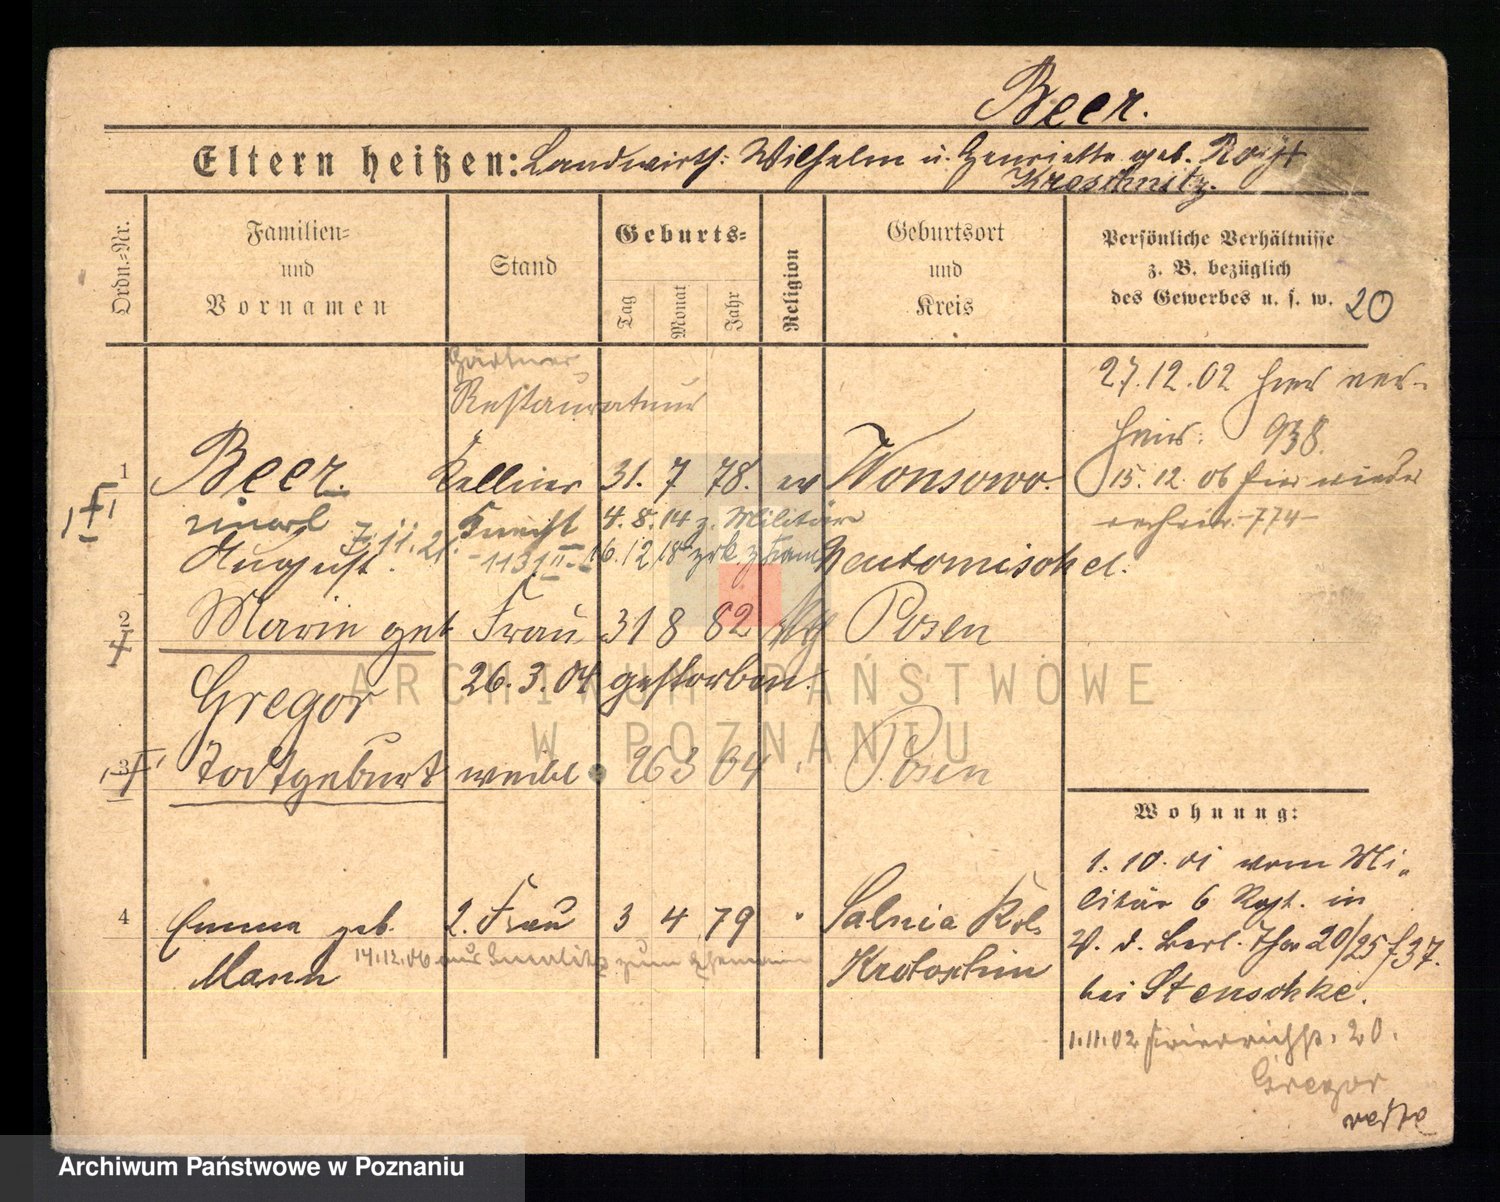 Beer.
Eltern heißen: Landwirth: Wilhelm u. Henriette geb.
Kreschnitz.
Ordn.-Nr.
Familien-
und
Vornamen
Stand
Geburts-
Tag
Monat
Jahr
Religion
Geburtsort
und
Kreis
Persönliche Verhältnisse
z. B. bezüglich
des Gewerbes u. s. w. 20
Gärtner,
Restaurateur
27.12.02 hier ver-
heir: 938.
1 Beer. Kellner 31. 7 78. ev Wonsowo.
15.12.06 hier wieder
verheir. 774
Knecht 4.8.14 z. Militär
August. 7.11.21. 16.12.18 zrk. z. Fam Neutomischel.
2 Marie geb Frau 31 8 82 kth Posen
Gregor 26.3.04 gestorben.
3 Todtgeburt weibl 26 3 04 Posen
Wohnung:
1.10.01 vom Mi-
litär 6 Rgt. in
V. d. Berl. Thor 20/25 f 37.
bei Stenschke.
1.11.02 Friedrichst. 20.
Gregor
4 Emma geb. 2. Frau 3 4 79 Salnia Kol.
Mann 14.12.06 aus zum Ehemann Krotoschin
ARCHIWUM PAŃSTWOWE
W POZNANIU
Archiwum Państwowe w Poznaniu